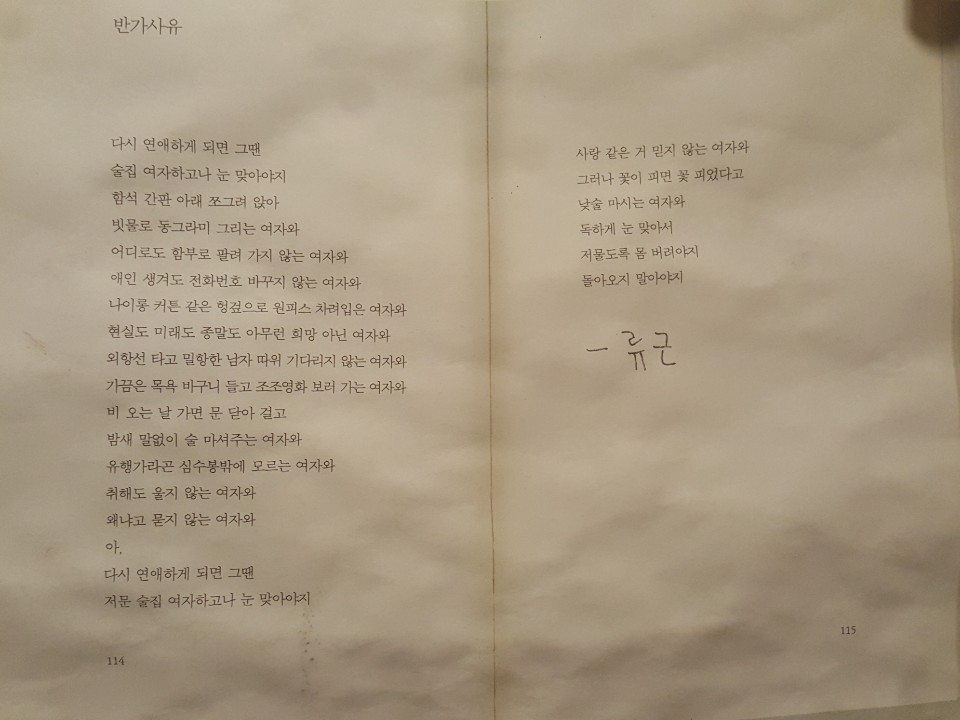 반가사유
다시 연애하게 되면 그땐
술집 여자하고나 눈 맞아야지
함석 간판 아래 쪼그려 앉아
빗물로 동그라미 그리는 여자와
어디로도 함부로 팔려 가지 않는 여자와
애인 생겨도 전화번호 바꾸지 않는 여자와
나이롱 커튼 같은 헝겊으로 원피스 차려입은 여자와
현실도 미래도 종말도 아무런 희망 아닌 여자와
외항선 타고 밀항한 남자 따위 기다리지 않는 여자와
가끔은 목욕 바구니 들고 조조영화 보러 가는 여자와
비 오는 날 가면 문 닫아 걸고
밤새 말없이 술 마셔주는 여자와
유행가라곤 심수봉밖에 모르는 여자와
취해도 울지 않는 여자와
왜냐고 묻지 않는 여자와
아,
다시 연애하게 되면 그땐
저문 술집 여자하고나 눈 맞아야지
114
사랑 같은 거 믿지 않는 여자와
그러나 꽃이 피면 꽃 피었다고
낮술 마시는 여자와
독하게 눈 맞아서
저물도록 몸 버려야지
돌아오지 말아야지
– 류근
115